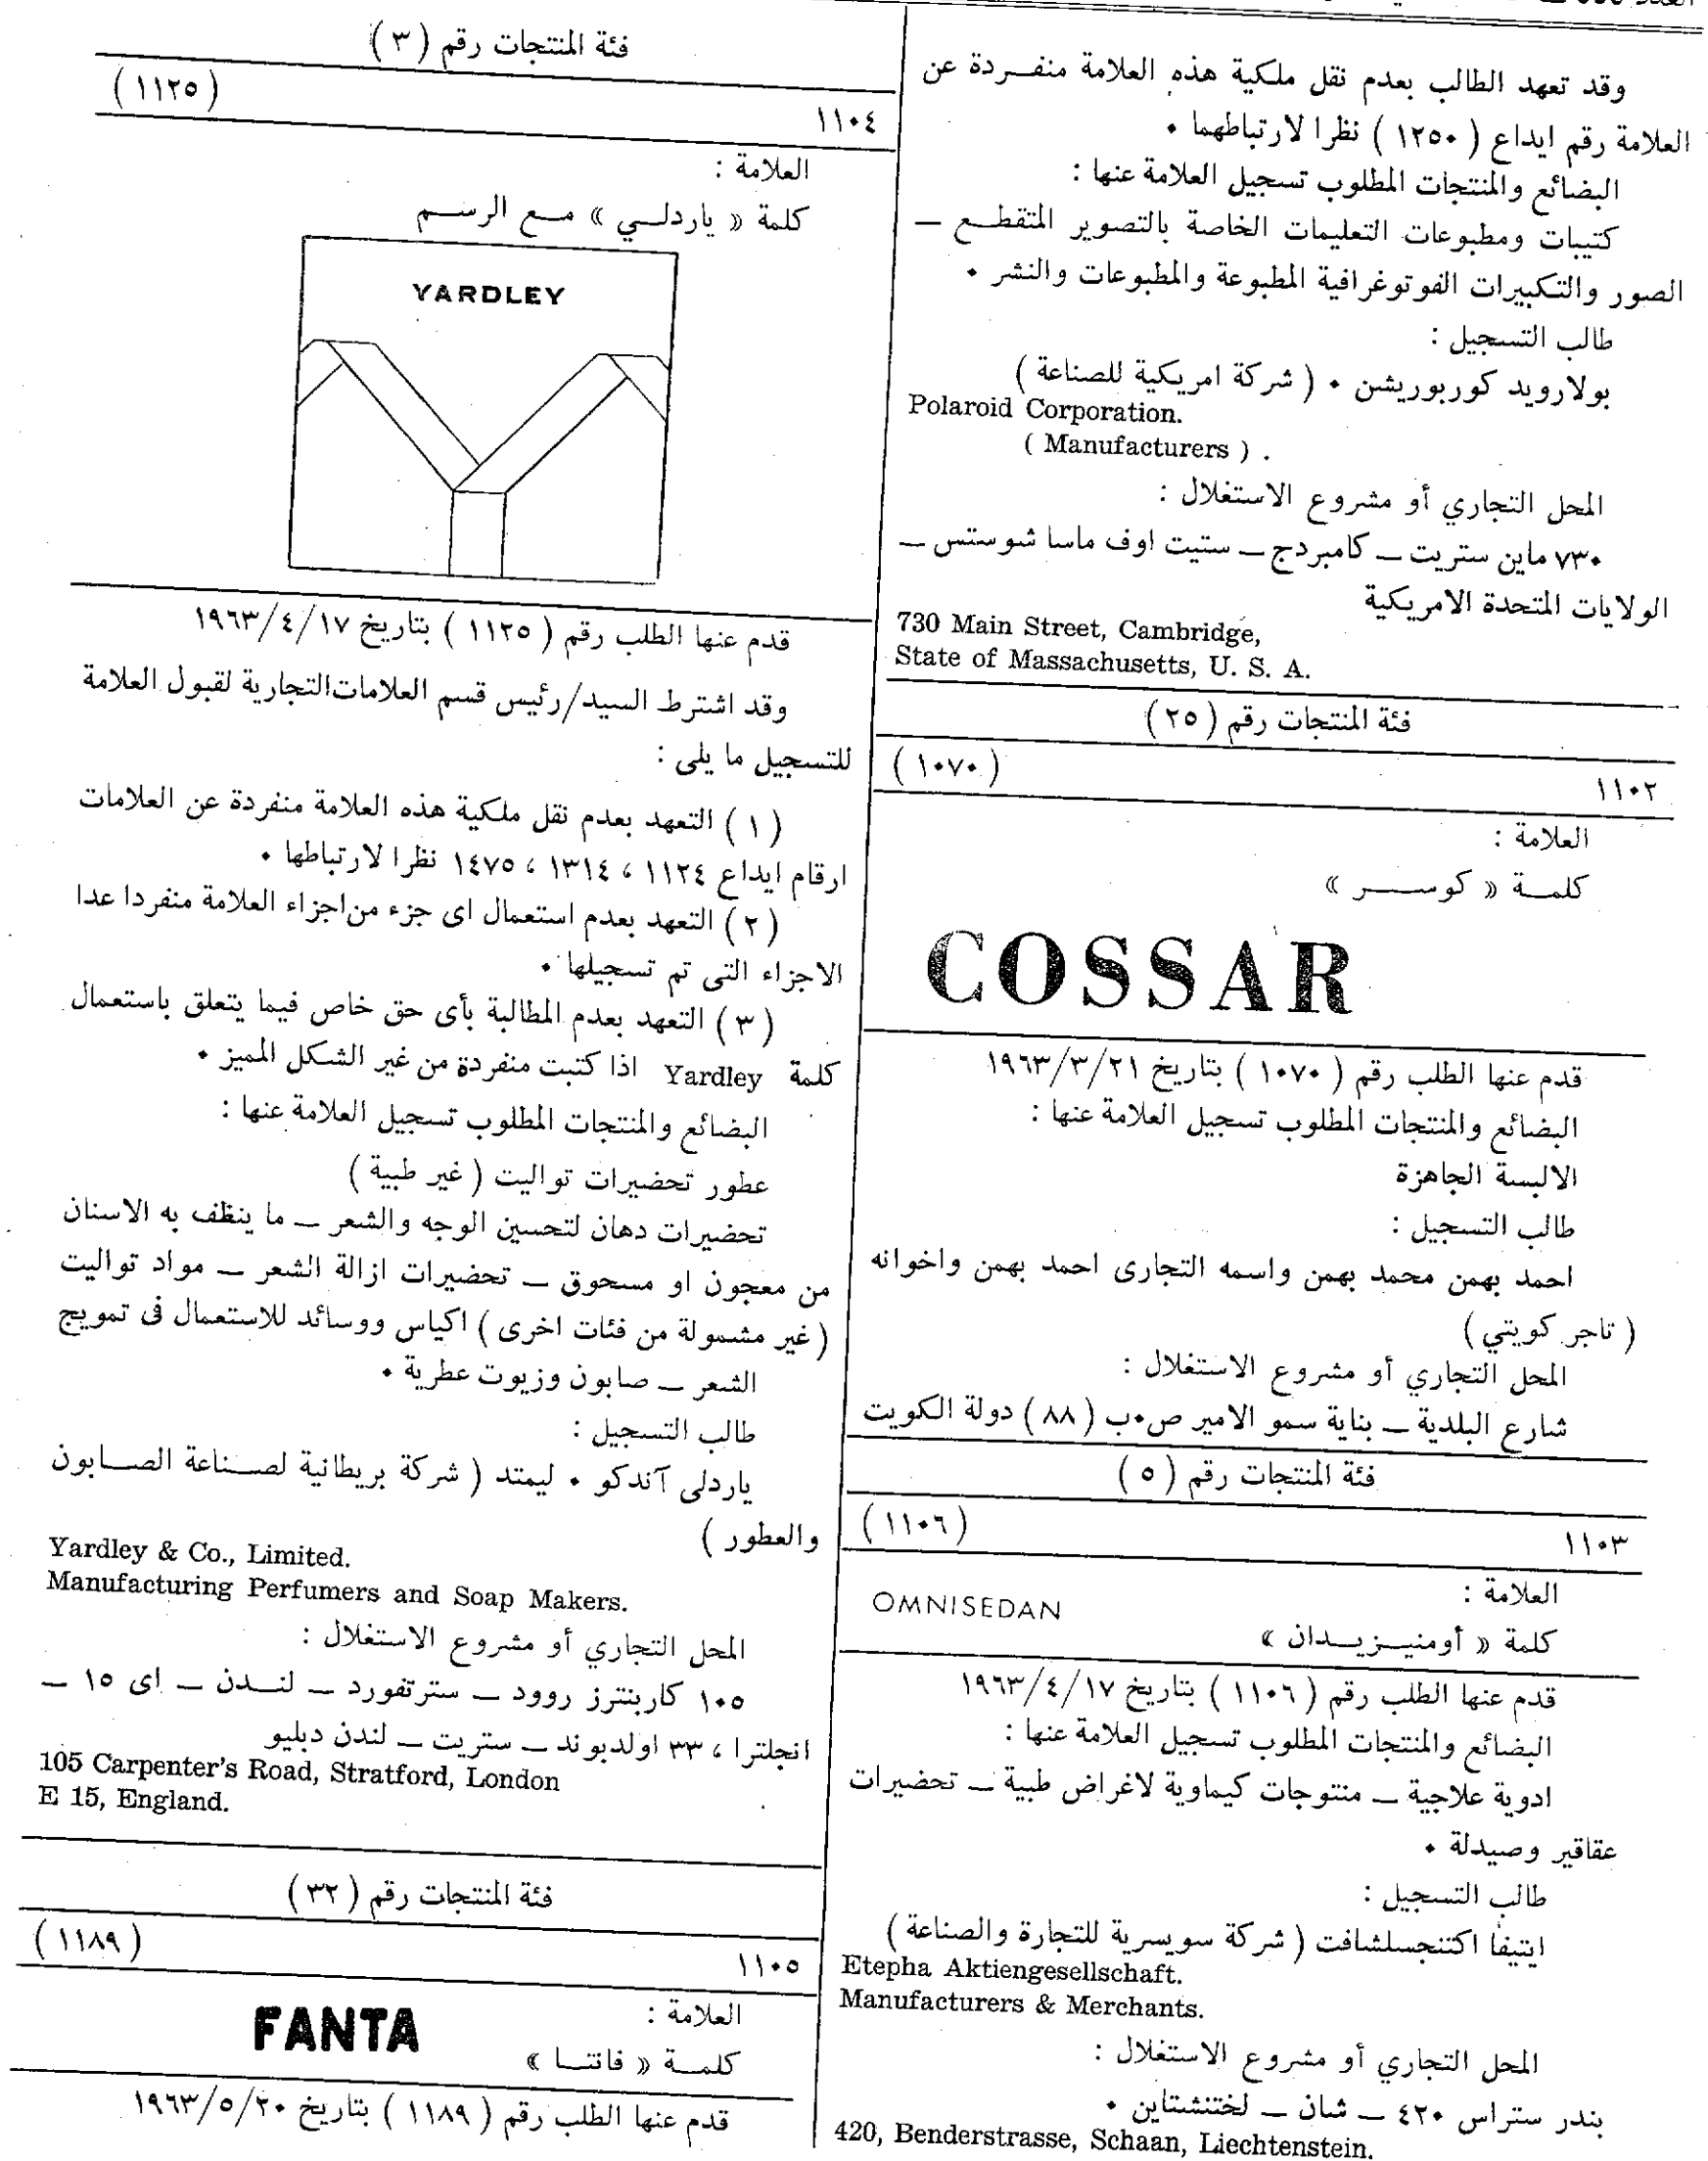 وقد تعهد الطالب بعدم نقل ملكية هذه العلامة منفردة عن
العلامة رقم ايداع ( ١٢٥٠ ) نظرا لارتباطهما .
البضائع والمنتجات المطلوب تسجيل العلامة عنها :
كتيبات ومطبوعات التعليمات الخاصة بالتصوير المتقطع —
الصور والتكبيرات الفوتوغرافية المطبوعة والمطبوعات والنشر .
طالب التسجيل :
بولارويد كوربوريشن . ( شركة امريكية للصناعة )
Polaroid Corporation.
( Manufacturers ) .
المحل التجاري أو مشروع الاستغلال :
٧٣٠ ماين ستريت — كامبردج — ستيت اوف ماسا شوستس —
الولايات المتحدة الامريكية
730 Main Street, Cambridge,
State of Massachusetts, U. S. A.
فئة المنتجات رقم ( ٢٥ )
١١٠٢ ( ١٠٧٠ )
العلامة :
كلمة « كوسر »
COSSAR
قدم عنها الطلب رقم ( ١٠٧٠ ) بتاريخ ١٩٦٣/٣/٢١
البضائع والمنتجات المطلوب تسجيل العلامة عنها :
الالبسة الجاهزة
طالب التسجيل :
احمد بهمن محمد بهمن واسمه التجارى احمد بهمن واخوانه
( تاجر كويتي )
المحل التجاري أو مشروع الاستغلال :
شارع البلدية — بناية سمو الامير ص.ب ( ٨٨ ) دولة الكويت
فئة المنتجات رقم ( ٥ )
١١٠٣ ( ١١٠٦ )
العلامة :
OMNISEDAN
كلمة « أومنيزيدان »
قدم عنها الطلب رقم ( ١١٠٦ ) بتاريخ ١٩٦٣/٤/١٧
البضائع والمنتجات المطلوب تسجيل العلامة عنها :
ادوية علاجية — منتوجات كيماوية لاغراض طبية — تحضيرات
عقاقير وصيدلة .
طالب التسجيل :
ايتيفا اكتنجسلشافت ( شركة سويسرية للتجارة والصناعة )
Etepha Aktiengesellschaft.
Manufacturers & Merchants.
المحل التجاري أو مشروع الاستغلال :
بندر ستراس ٤٢٠ — شان — لختنشتاين .
420, Benderstrasse, Schaan, Liechtenstein.
فئة المنتجات رقم ( ٣ )
١١٠٤ ( ١١٢٥ )
العلامة :
كلمة « ياردلي » مع الرسم
YARDLEY
قدم عنها الطلب رقم ( ١١٢٥ ) بتاريخ ١٩٦٣/٤/١٧
وقد اشترط السيد/رئيس قسم العلامات التجارية لقبول العلامة
للتسجيل ما يلى :
( ١ ) التعهد بعدم نقل ملكية هذه العلامة منفردة عن العلامات
ارقام ايداع ١١٢٤ ، ١٣١٤ ، ١٤٧٥ نظرا لارتباطها .
( ٢ ) التعهد بعدم استعمال اى جزء من اجزاء العلامة منفردا عدا
الاجزاء التى تم تسجيلها .
( ٣ ) التعهد بعدم المطالبة بأى حق خاص فيما يتعلق باستعمال
كلمة Yardley اذا كتبت منفردة من غير الشكل المميز .
البضائع والمنتجات المطلوب تسجيل العلامة عنها :
عطور تحضيرات تواليت ( غير طبية )
تحضيرات دهان لتحسين الوجه والشعر — ما ينظف به الاسنان
من معجون او مسحوق — تحضيرات ازالة الشعر — مواد تواليت
( غير مشمولة من فئات اخرى ) اكياس ووسائد للاستعمال فى تمويج
الشعر — صابون وزيوت عطرية .
طالب التسجيل :
ياردلى آندكو . ليمتد ( شركة بريطانية لصناعة الصابون
والعطور )
Yardley & Co., Limited.
Manufacturing Perfumers and Soap Makers.
المحل التجاري أو مشروع الاستغلال :
١٠٥ كاربنترز روود — سترتفورد — لندن — اى ١٥ —
انجلترا ، ٣٣ اولدبوند — ستريت — لندن دبليو
105 Carpenter's Road, Stratford, London
E 15, England.
فئة المنتجات رقم ( ٣٢ )
١١٠٥ ( ١١٨٩ )
العلامة :
FANTA
كلمة « فانتا »
قدم عنها الطلب رقم ( ١١٨٩ ) بتاريخ ١٩٦٣/٥/٢٠